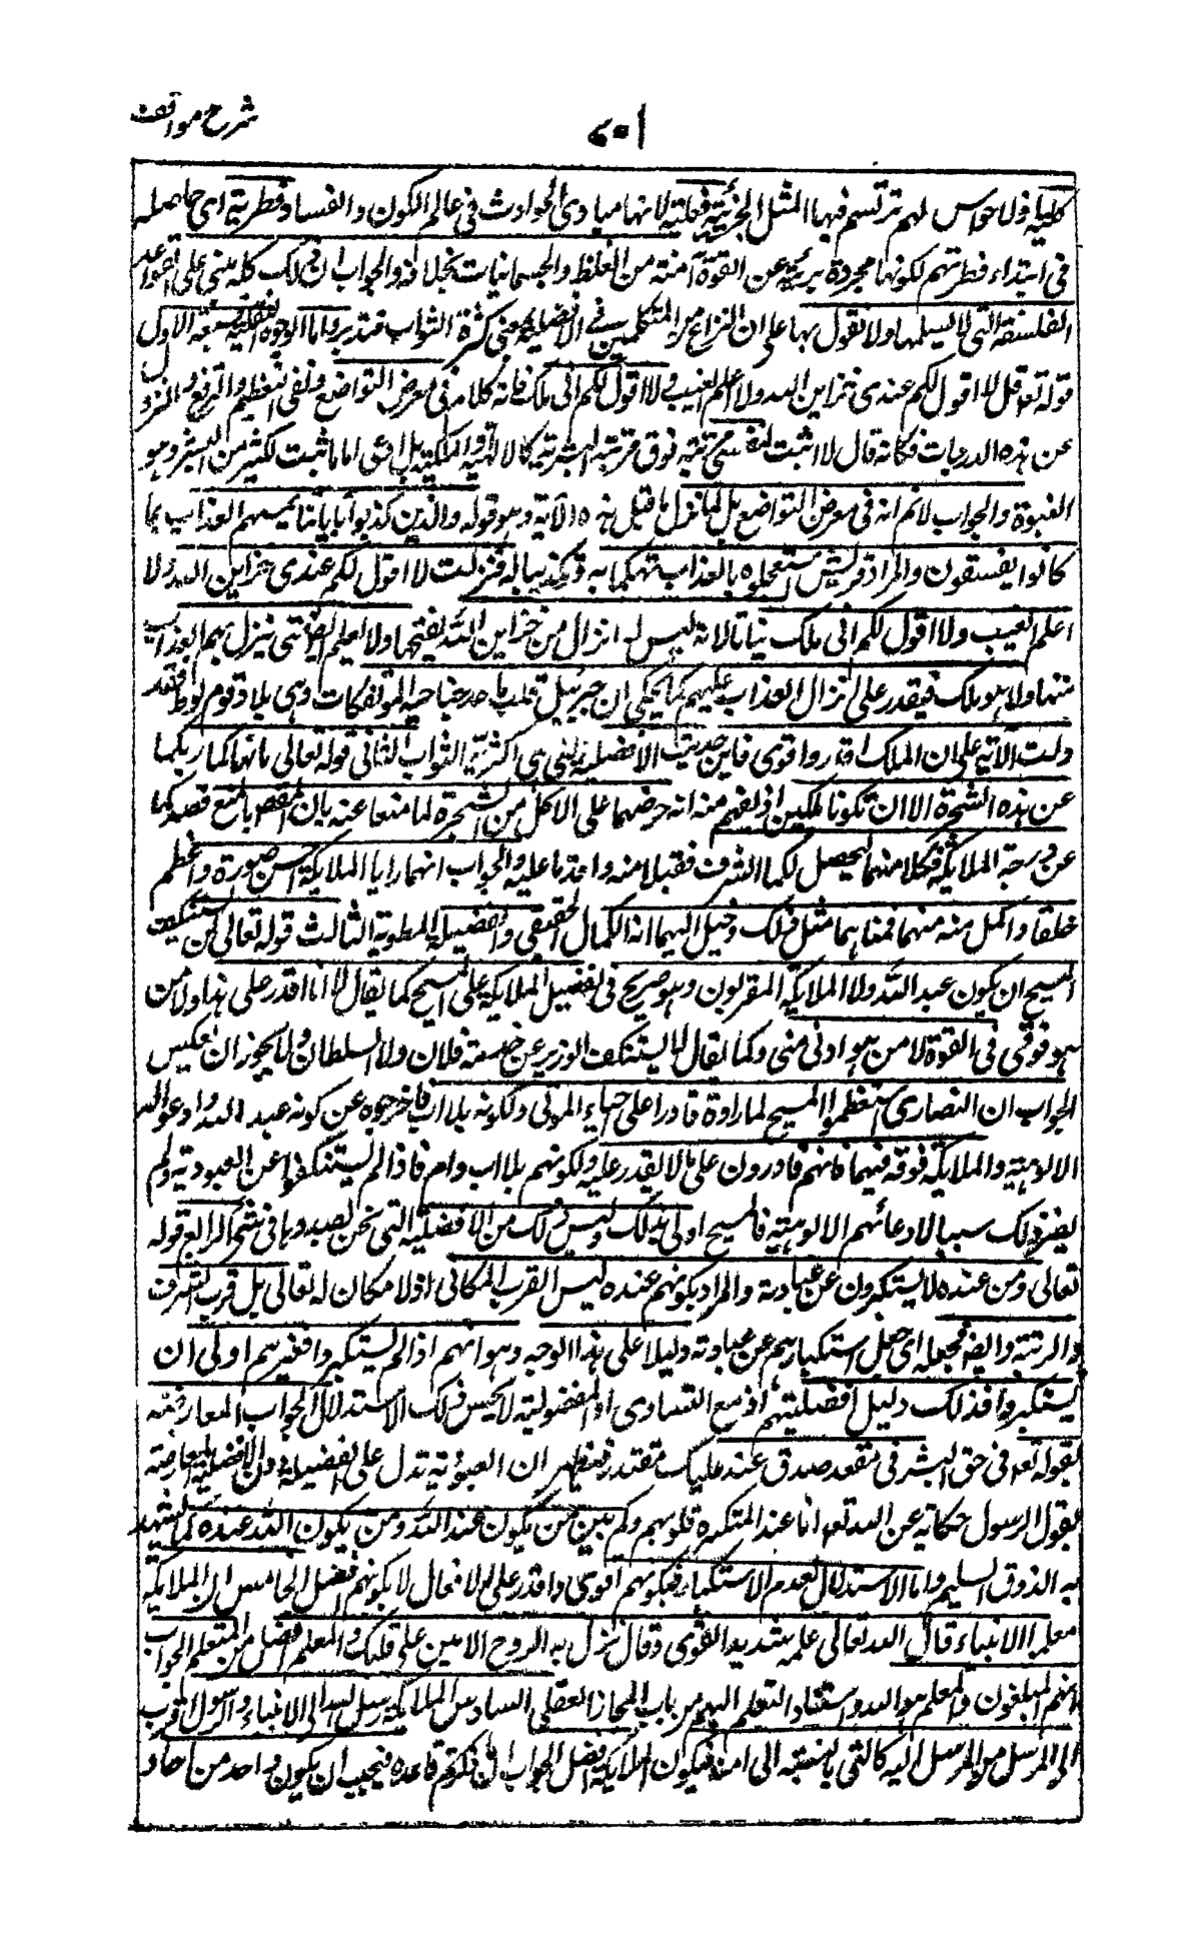 شرح مواقف
٧٠١
كلية ولا حواس لهم ترتسم فيها المثل الجزئية فعلية لانها مبادى الحوادث فى عالم الكون والفساد فطرية اى حاصله
فى ابتداء فطرتهم لكونها مجردة بريئة عن القوة آمنة من الغلط والجسمانيات بخلافه والجواب ان ذلك كله مبنى على القواعد
الفلسفة التى لا نسلمها ولا نقول بها على ان النزاع من المتكلمين فى الافضلية بمعنى كثرة الثواب فتدبر واما الوجوه النقلية فسبعة الاول
قوله تع قل لا اقول لكم عندى خزاين الله ولا اعلم الغيب ولا اقول لكم انى ملك فانه كلام فى معرض التواضع ونفى التعظيم والترفع والنزول
عن هذه الدرجات فكانه قال لا اثبت لنفسى مرتبة فوق مرتبة البشرية كالالهية والملكية بل ادعى لها ما ثبت لكثير من البشر وهو
النبوة والجواب لانم انه فى معرض التواضع بل لما نزل ما قبل هذه الآية وهو قوله والذين كذبوا بآياتنا يمسهم العذاب بما
كانوا يفسقون والمراد قريش استعجلوه بالعذاب تهكما به وتكذيبا له فنزلت لا اقول لكم عندى خزاين الله ولا
اعلم الغيب ولا اقول لكم انى ملك بيانا لانه ليس له انزال من خزاين الله يفتحها ولا يعلم ايض متى ينزل بهم العذاب
منها ولا هو ملك فيقدر على انزال العذاب عليهم كما يحكى ان جبرئيل قلب باحد جناحيه المؤتفكات وهى بلاد قوم لوط فقد
دلت الآية على ان الملك اقدر واقوى فاين حديث الافضلية التى هى اكثرية الثواب الثانى قوله تعالى ما نهاكما ربكما
عن هذه الشجرة الا ان تكونا ملكين اذ يفهم منه انه حرضهما على الاكل من الشجرة لما منعا عنه بان المقص بالمنع قصدكما
عن درجة الملائكة فكلا منها ليحصل لكما الشرف فقبلا منه واقدما عليه والجواب انهما رايا الملايكة احسن صورة واعظم
خلقا واكمل منه منهما فمناهما مثل ذلك وخيل اليهما انه الكمال الحقيقى والفضيلة المطلوبة الثالث قوله تعالى لن يستنكف
المسيح ان يكون عبد الله ولا الملايكة المقربون وهو صريح فى تفضيل الملايكة على المسيح كما يقال لا انا اقدر على هذا ولا من
هو فوقى فى القوة لا من هو ادنى منى وكما يقال لا يستنكف الوزير عن خدمة فلان ولا السلطان ولا يجوز ان يعكس
الجواب ان النصارى استعظموا المسيح لما راوه قادرا على احياء الموتى ولكونه بلا اب فاخرجوه عن كونه عبد الله وادعوا له
الالوهية والملايكة فوقه فيهما فانهم قادرون على ما لا يقدر عليه ولكونهم بلا اب وام فاذا لم يستنكفوا عن العبودية ولم
يصر ذلك سببا لادعائهم الالوهية فالمسيح اولى بذلك وليس ذلك من الافضلية التى نحن بصددها فى شئ الرابع قوله
تعالى ومن عنده لا يستكبرون عن عبادته والمراد بكونهم عنده ليس القرب المكانى اذ لا مكان له تعالى بل قرب الشرف
والرتبة وايضا فجعله اى جعل استكبارهم عن عبادته دليلا على هذا الوجه وهو انهم اذا لم يستكبروا فغيرهم اولى ان
لا يستكبروا فذلك دليل افضليتهم اذ مع التساوى او المفضولية لا يحسن ذلك الاستدلال الجواب المعارضة
بقوله تع فى حق البشر فى مقعد صدق عند مليك مقتدر فيظهر ان العبودية تدل على الفضيلة دون الافضلية والمعارضة
بقول الرسول حكاية عن الله تع انا عند المنكسرة قلوبهم وكم بين من يكون عند الله ومن يكون الله عنده كما يشهد
به الذوق السليم واما الاستدلال بعدم الاستكبار فبكونهم اقوى واقدر على الافعال لا بكونهم افضل الخامس ان الملايكة
معلموا الانبياء قال الله تعالى علمه شديد القوى وقال نزل به الروح الامين على قلبك والمعلم افضل من المتعلم الجواب
انهم المبلغون والمعلم هو الله واستناد التعلم اليهم من باب المجاز العقلى السادس الملايكة رسل الله الى الانبياء والرسول اقرب
الى المرسل من المرسل اليه كالنبى بالنسبة الى امته فيكون الملايكة افضل الجواب ان ذكرتم قاعدة فيجب ان يكون واحد من احاد